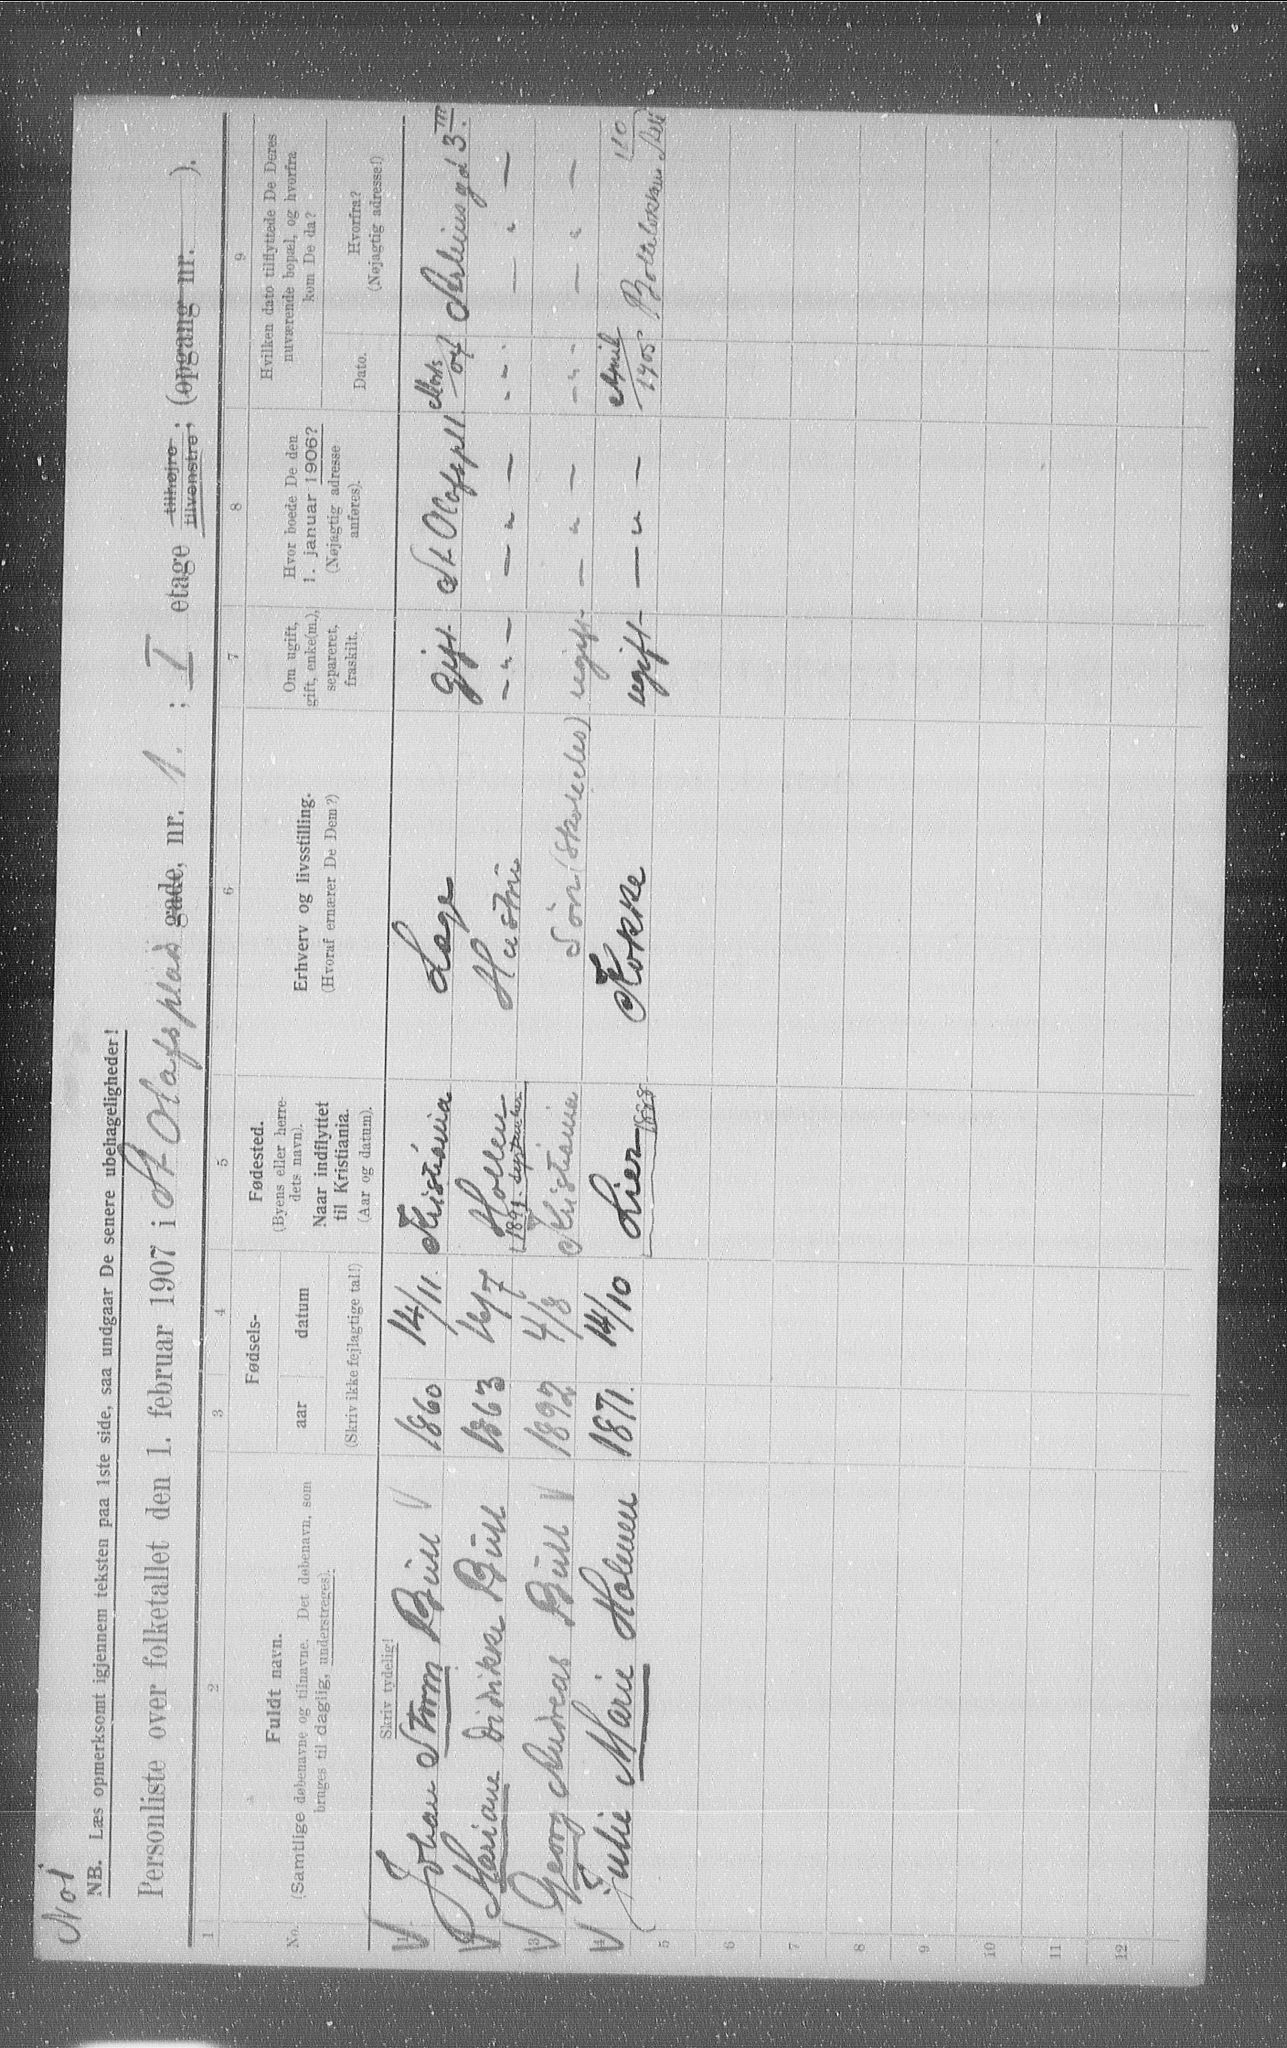 No 1
NB. Læs opmerksomt igjennem teksten paa 1ste side, saa undgaar De senere ubehageligheder!
Personliste over folketallet den 1. februar 1907 i St Olafs plads gade, nr. 1. ; I etage tilhøjre tilvenstre, (opgang nr. ).
1 2 3 4 5 6 7 8 9
No.
Fuldt navn.
(Samtlige døbenavne og tilnavne. Det døbenavn, som
bruges til daglig, understreges).
Skriv tydelig!
Fødsels-
aar
datum
(Skriv ikke fejlagtige tal!)
Fødested.
(Byens eller herre-
dets navn).
Naar indflyttet
til Kristiania.
(Aar og datum).
Erhverv og livsstilling.
(Hvoraf ernærer De Dem?)
Om ugift,
gift, enke(m.),
separeret,
fraskilt.
Hvor boede De den
1. januar 1906?
(Nøjagtig adresse
anføres).
Hvilken dato tilflyttede De Deres
nuværende bopæl, og hvorfra
kom De da?
Dato.
Hvorfra?
(Nøjagtig adresse!)
V 1 Johan Storm Bull V 1860 14/11. Kristiania Læge gift St Olafspl 1 04 3 III
V 2 Mariane Didrikke Bull 1863 16/7 Hollen 1891. september Hustru - " - - " - - " - - " -
V 3 Georg Andreas Bull V 1892 4/8 Kristiania Søn (skoleelev) ugift - " - - " - - " -
V 4 Julie Marie Holmen 1871. 14/10 Lier 1888 Kokke ugift - " - April 1905 110
5
6
7
8
9
10
11
12